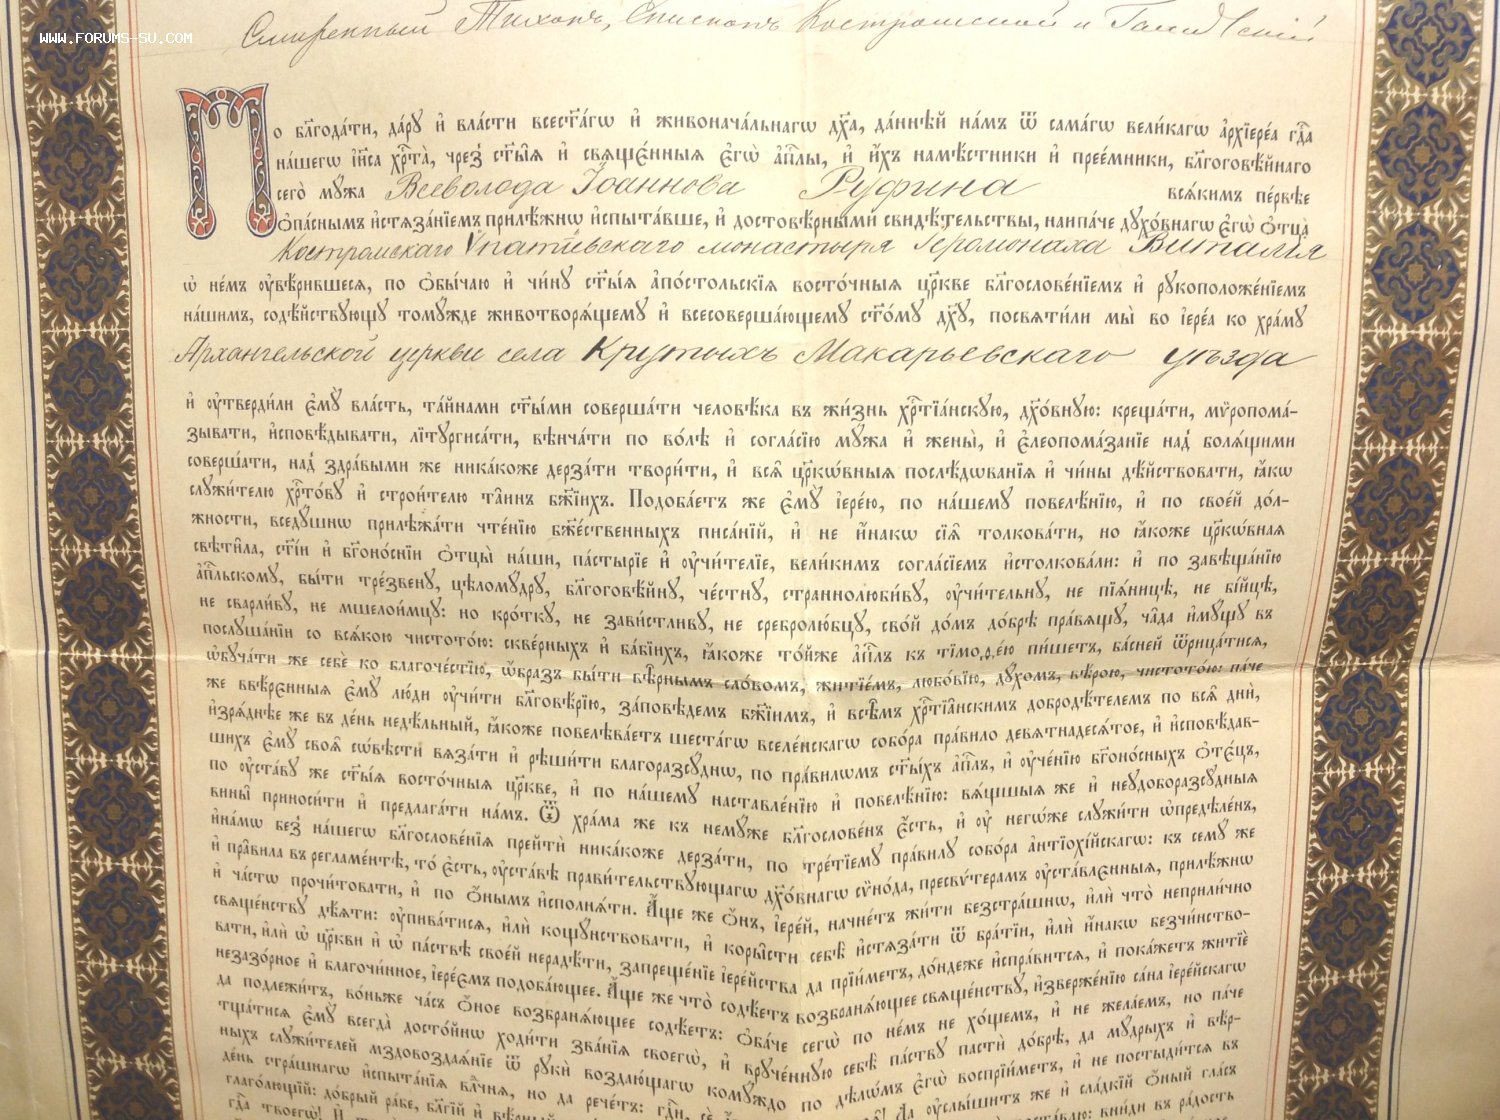 www.forums-su.com
Смиренный Тихонъ, Епископъ Костромской и Галичскій
По бл҃года́ти, да́рꙋ и҆ вла́сти всест҃а́гѡ и҆ живонача́льнагѡ дх҃а, да́ннѣй на́мъ ѿ сама́гѡ вели́кагѡ а҆рхїере́а гд҇а
на́шегѡ і҆и҃са хрⷭ҇та̀, чрез̾ ст҃ы̑ѧ и҆ свѧще́нныѧ є҆гѡ̀ а҆пⷭ҇лы, и҆ и҆́хъ намѣ́стники и҆ прее́мники, бл҃гоговѣ́йнаго
сего̀ мꙋ́жа Всеволода Іоаннова Руфина всѧ́кимъ пе́рвѣе
ѻ҆па́снымъ и҆стѧза́нїемъ прилѣ́жнѡ и҆спыта́вше, и҆ достовѣ́рными свидѣ́тельствы, наипа́че дꙋхо́внагѡ є҆гѡ̀ ѻ҆тца̀
Костромскаго Ѵпатіевскаго монастыря Іеромонаха Виталія
ѡ҆ не́мъ ᲂу҆вѣ́рившесѧ, по ѻ҆бы́чаю и҆ чи́нꙋ ст҃ы́ѧ а҆по́стольскїѧ восто́чныѧ цр҃кве бл҃гослове́нїемъ и҆ рꙋкоположе́нїемъ
на́шимъ, содѣ́йствꙋющꙋ томꙋ́жде животворѧ́щемꙋ и҆ всесоверша́ющемꙋ ст҃о́мꙋ дх҃ꙋ, посвѧти́ли мы̀ во і҆ере́а ко хра́мꙋ
Архангельской церкви села Крутыхъ Макарьевскаго уѣзда
и҆ ᲂу҆тверди́ли є҆мꙋ̀ вла́сть, та́йнами ст҃ы́ми соверша́ти человѣ́ка въ жи́знь хрⷭ҇тїа́нскꙋю, дх҃о́внꙋю: креща́ти, мѵ̈ропома́-
зывати, и҆сповѣ́дывати, лїтꙋргиса́ти, вѣнча́ти по во́лѣ и҆ согла́сїю мꙋ́жа и҆ жены̀, и҆ є҆леопома́занїе над̾ болѧ́щими
соверша́ти, над̾ здра́выми же ника́коже дерза́ти твори́ти, и҆ всѧ̑ цр҃кѡ́вныѧ послѣ́дѡванїѧ и҆ чи́ны дѣ́йствовати, ꙗ҆́кѡ
слꙋжи́телю хрⷭ҇то́вꙋ и҆ строи́телю та̑инъ бж҃їихъ. Подоба́етъ же є҆мꙋ̀ і҆ере́ю, по на́шемꙋ повелѣ́нїю, и҆ по свое́й до́л-
жности, вседꙋ́шнѡ прилѣжа́ти чте́нїю бж҃е́ственныхъ писа́нїй, и҆ не и҆́накѡ сїѧ̑ толкова́ти, но ꙗ҆́коже цр҃кѡ́внаѧ
свѣти̑ла, ст҃і́и и҆ бг҃оно́снїи ѻ҆тцы̀ на́ши, па́стырїе и҆ ᲂу҆чи́телїе, вели́кимъ согла́сїемъ и҆столкова́ли: и҆ по завѣща́нїю
а҆пⷭ҇льскомꙋ, бы́ти тре́звенꙋ, цѣломꙋ́дрꙋ, бл҃гоговѣ́йнꙋ, че́стнꙋ, страннолюби́вꙋ, ᲂу҆чи́тельнꙋ, не пїѧ́ницѣ, не бі́йцѣ,
не сварли́вꙋ, не мшелои́мцꙋ: но кро́ткꙋ, не зави́стливꙋ, не сребролю́бцꙋ, сво́й до́мъ до́брѣ пра́вѧщꙋ, ча̑да и҆мꙋ́щꙋ въ
послꙋша́нїи со всѧ́кою чистото́ю: скве́рныхъ и҆ ба́бїихъ, ꙗ҆́коже то́йже а҆пⷭ҇лъ къ тїмоѳе́ю пи́шетъ, ба́сней ѿрица́тисѧ,
ѡ҆бꙋча́ти же себѐ ко благоче́стїю, ѡ҆́бразъ бы́ти вѣ̑рнымъ сло́вомъ, житїе́мъ, любо́вїю, дꙋ́хомъ, вѣ́рою, чистото́ю: па́че
же ввѣ́рєнныѧ є҆мꙋ̀ лю́ди ᲂу҆чи́ти бл҃говѣ́рїю, за́повѣдемъ бж҃їимъ, и҆ всѣ̑мъ хрⷭ҇тїа́нскимъ добродѣ́телемъ по всѧ̑ дни̑,
и҆зрѧ́днѣе же въ де́нь недѣ́льный, ꙗ҆́коже повелѣва́етъ шеста́гѡ вселе́нскагѡ собо́ра пра́вило девѧтнадесѧ́тое, и҆ и҆сповѣ́дав-
шихъ є҆мꙋ̀ своѧ̑ сѡ́вѣсти вѧза́ти и҆ рѣши́ти благоразсꙋ́днѡ, по пра́вилѡмъ ст҃ы́хъ а҆пⷭ҇лъ, и҆ ᲂу҆че́нїю бг҃оно́сныхъ ѻ҆тє́цъ,
по ᲂу҆ста́вꙋ же ст҃ы́ѧ восто́чныѧ цр҃кве, и҆ по на́шемꙋ наставле́нїю и҆ повелѣ́нїю: вѧ́щшыѧ же и҆ неꙋдоборазсꙋ́дныѧ
вины̑ приноси́ти и҆ предлага́ти на́мъ. Ѿ хра́ма же къ немꙋ́же бл҃гослове́нъ є҆́сть, и҆ ᲂу҆ негѡ́же слꙋжи́ти ѡ҆предѣле́нъ,
и҆на́мѡ без̾ на́шегѡ бл҃гослове́нїѧ прейти̑ ника́коже дерза́ти, по тре́тїемꙋ пра́вилꙋ собо́ра а҆нтїохі́йскагѡ: къ семꙋ́ же
и҆ пра̑вила въ регламе́нтѣ, то́ є҆́сть, ᲂу҆ста́вѣ прави́тельствꙋющагѡ дх҃о́внагѡ сѵ̈но́да, пресвѵ́терамъ ᲂу҆ста́влєнныѧ, прилѣ́жнѡ
и҆ ча́стѡ прочи́товати, и҆ по ѻ҆́нымъ и҆сполнѧ́ти. А҆́ще же ѻ҆́нъ, і҆ере́й, начне́тъ жи́ти безстра́шнѡ, и҆лѝ что̀ неприли́чно
свѧще́нствꙋ дѣ́ѧти: ᲂу҆пива́тисѧ, и҆лѝ кощꙋ́нствовати, и҆ коры̑сти себѣ̀ и҆стѧза́ти ѿ бра́тїи, и҆лѝ и҆́накѡ безчи́нство-
вати, и҆лѝ ѡ҆ цр҃кви и҆ ѡ҆ па́ствѣ свое́й нерадѣ́ти, запреще́нїе і҆ере́йства да прїи́метъ, до́ндеже и҆спра́витсѧ, и҆ пока́жетъ житїѐ
незазо́рное и҆ благочи́нное, і҆ере́ємъ подоба́ющее. А҆́ще же что̀ содѣ́етъ возбранѧ́ющее свѧще́нствꙋ, и҆зверже́нїю са́на і҆ере́йскагѡ
да подлежи́тъ, во́ньже ча́съ ѻ҆́ное возбранѧ́ющее содѣ́етъ: ѻ҆ба́че сегѡ̀ по не́мъ не хо́щемъ, и҆ не жела́емъ, но па́че
тща́тисѧ є҆мꙋ̀ всегда̀ досто́йнѡ ходи́ти зва́нїѧ своегѡ̀, и҆ врꙋче́ннꙋю себѣ̀ па́ствꙋ пастѝ до́брѣ, да мꙋ́дрыхъ и҆ вѣ́р-
ныхъ слꙋжи́телей мздовоздаѧ́нїе ѿ рꙋкѝ воздаю́щагѡ комꙋ́ждо по дѣлѡ́мъ є҆гѡ̀ воспрїи́метъ, и҆ не постыди́тсѧ въ
де́нь стра́шнагѡ и҆спыта́нїѧ влⷣчнѧ, но да рече́тъ: гдⷭ҇и, сѐ да ᲂу҆слы́шитъ же и҆ сла́дкїй ѻ҆́ный гла́съ
глаго́лющїй: до́брый ра́бе, бл҃гі́й и҆ вѣ́рный поста́влю: вни́ди въ ра́дость
гдⷭ҇а твоегѡ̀!